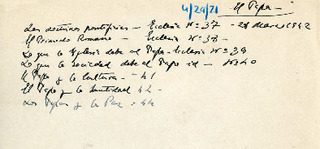 4/29/71 El Papa -
Las doctrinas pontificias - Ecclesia Nº 37 - 28 Marzo 1942
El Primado Romano - Ecclesia Nº 38 -
Lo que la Iglesia debe al Papa - Ecclesia Nº 39
Lo que la sociedad debe al Papa id - Nº 40
El Papa y la cultura - 41
El Papa y la Santidad 42 -
Los Papas y la Paz - 44